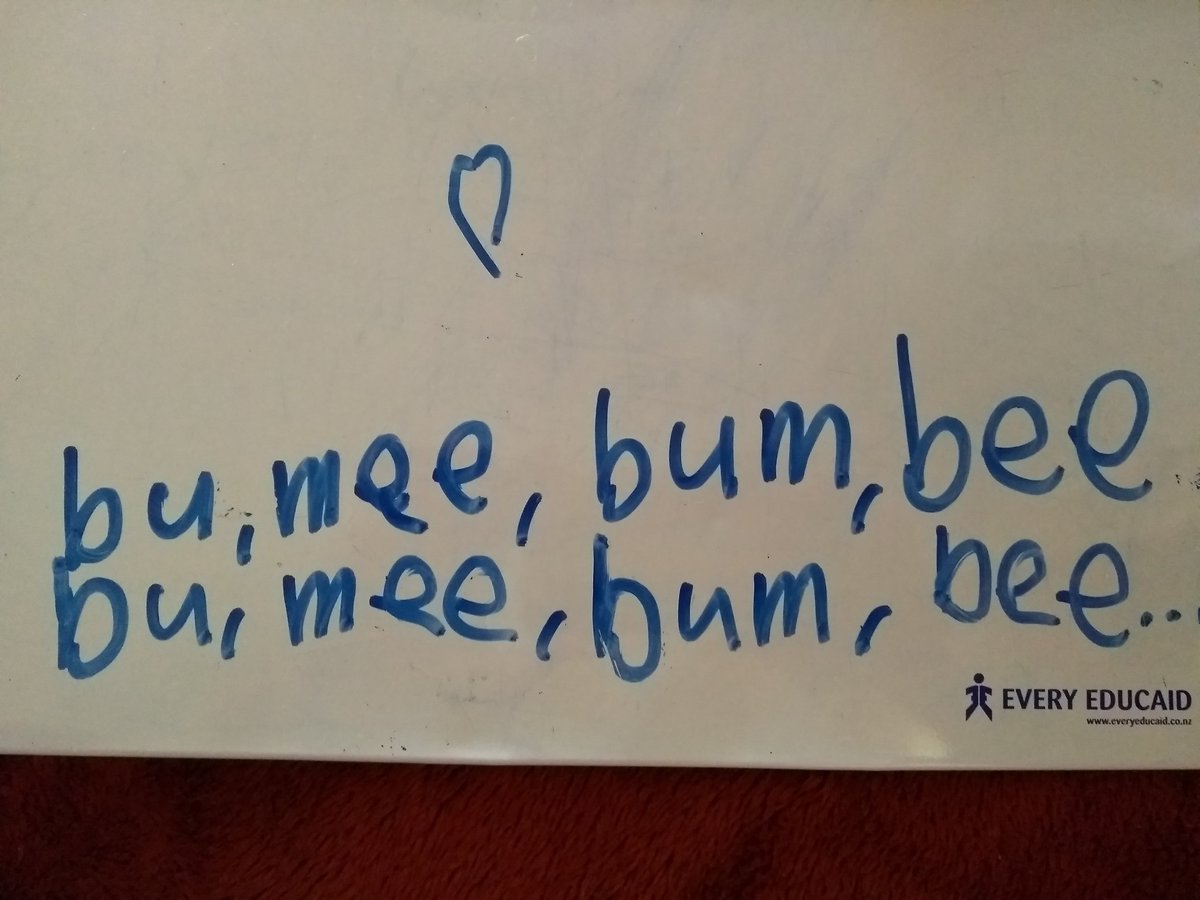 bu, mee, bum, bee
bu, mee, bum, bee...
EVERY EDUCAID
www.everyeducaid.co.nz